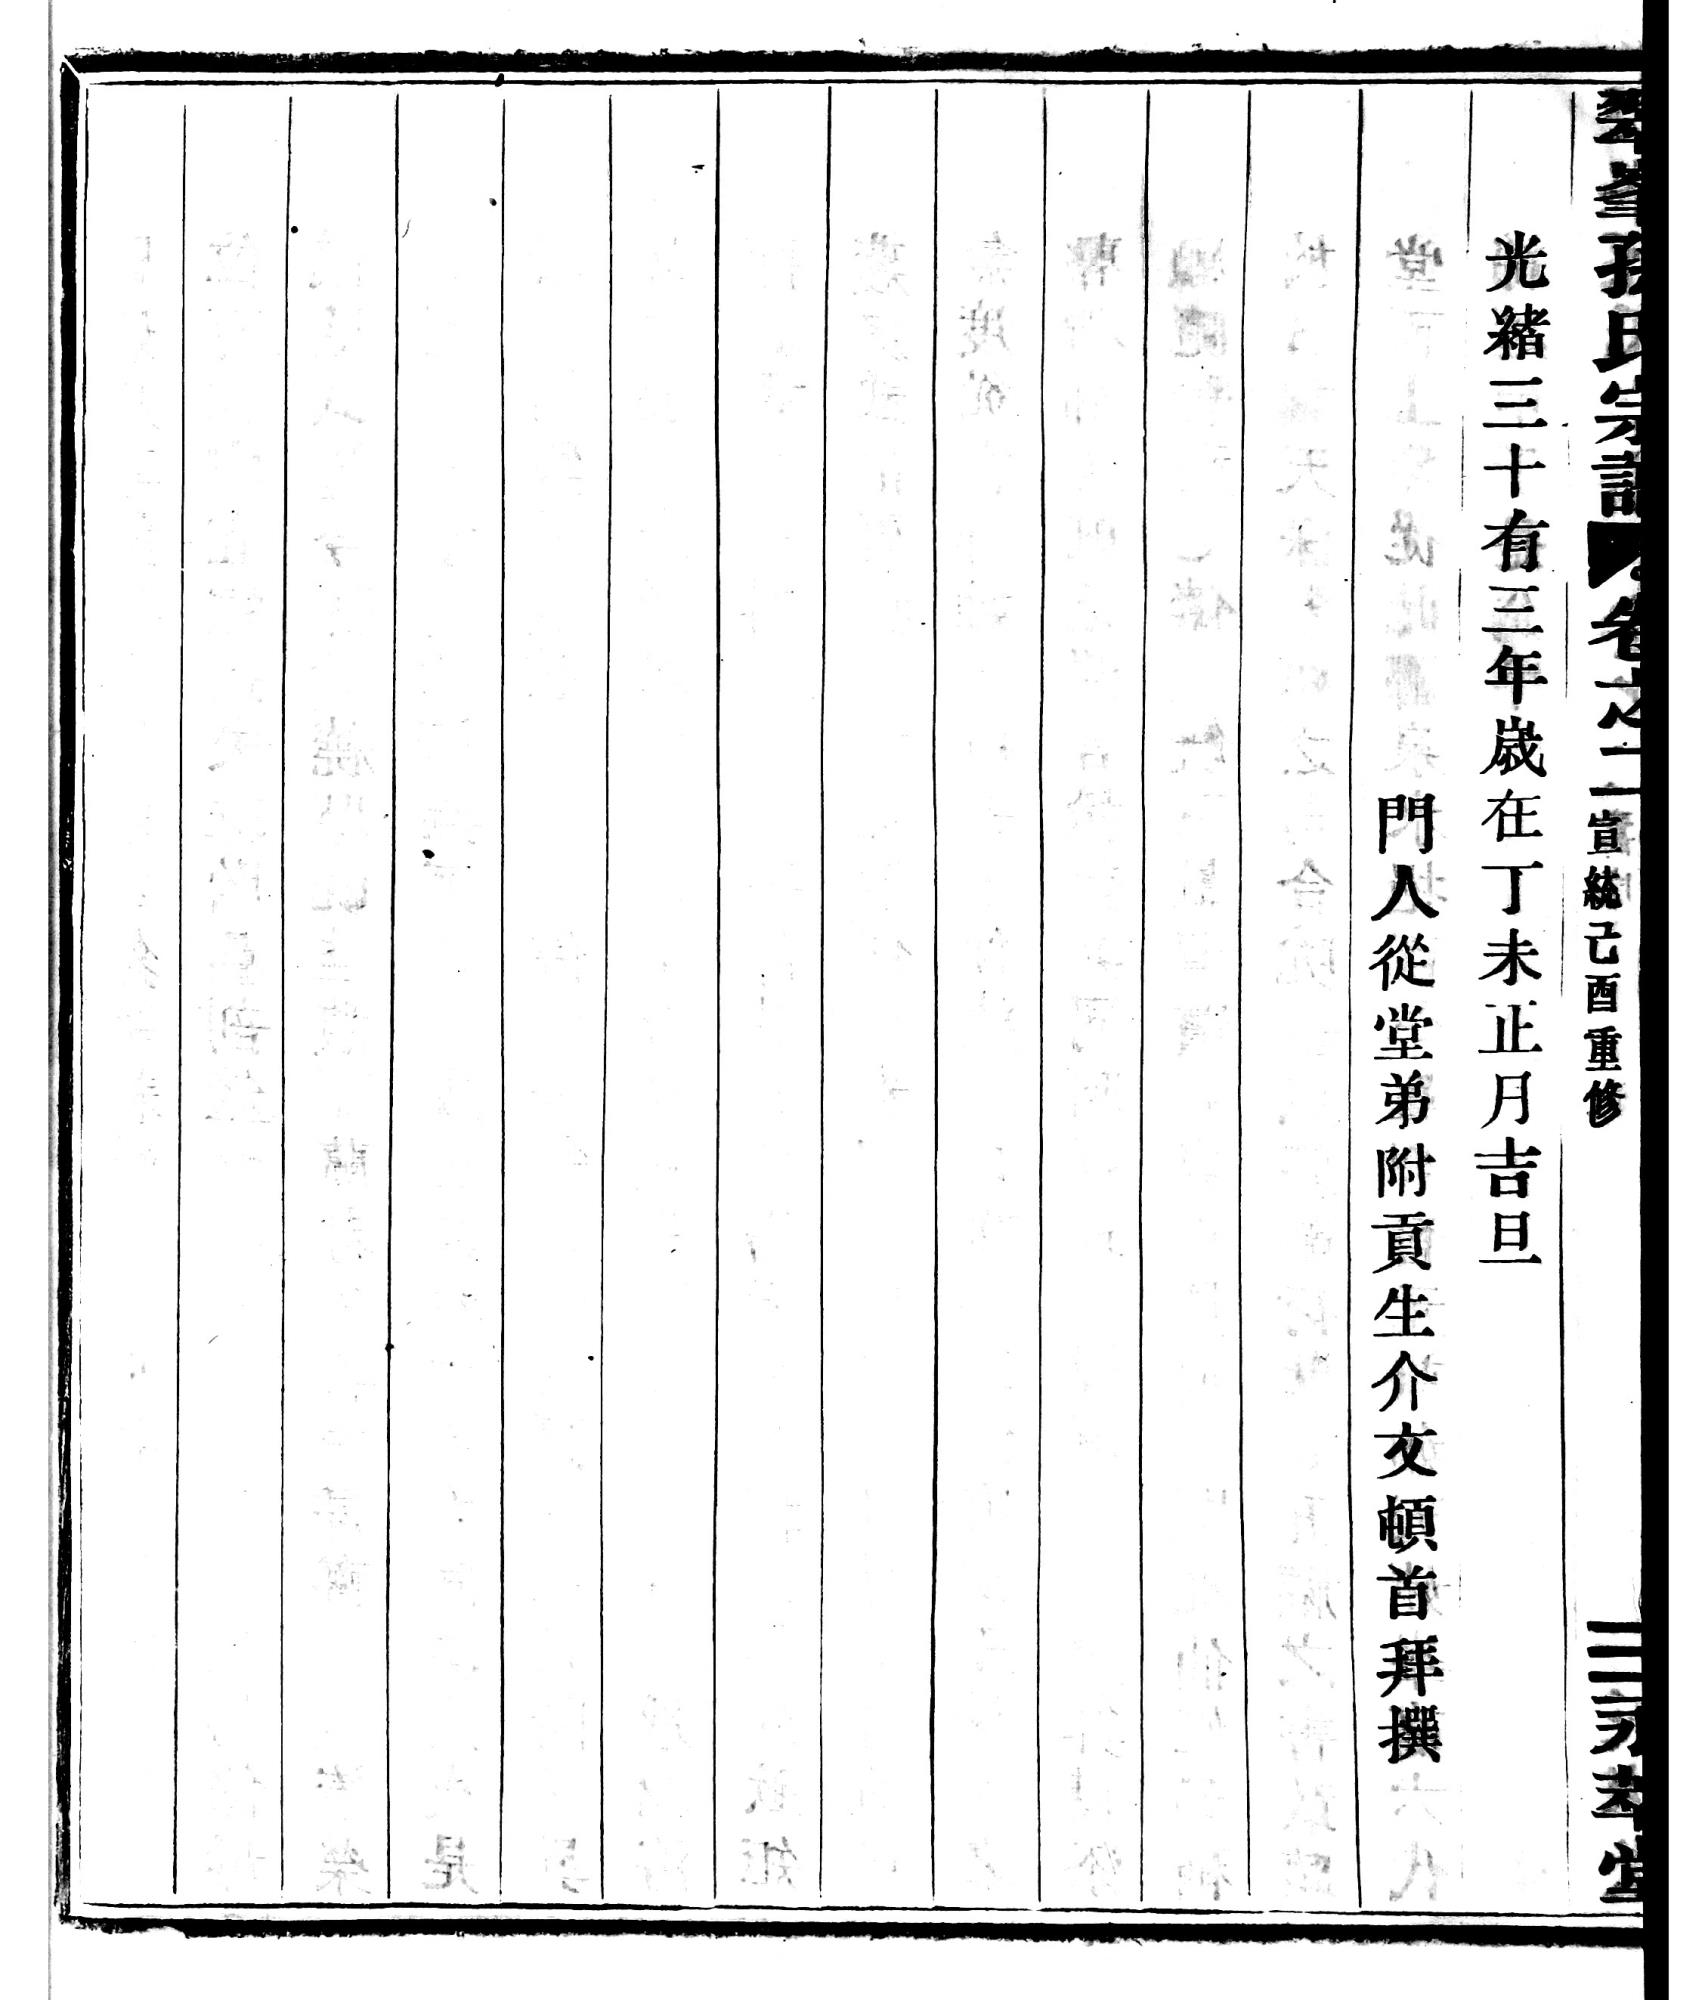 孫氏宗譜 卷之二 宣統己酉重修 三 永萃堂
光緒三十有三年歲在丁未正月吉旦
門人從堂弟附貢生介文頓首拜撰